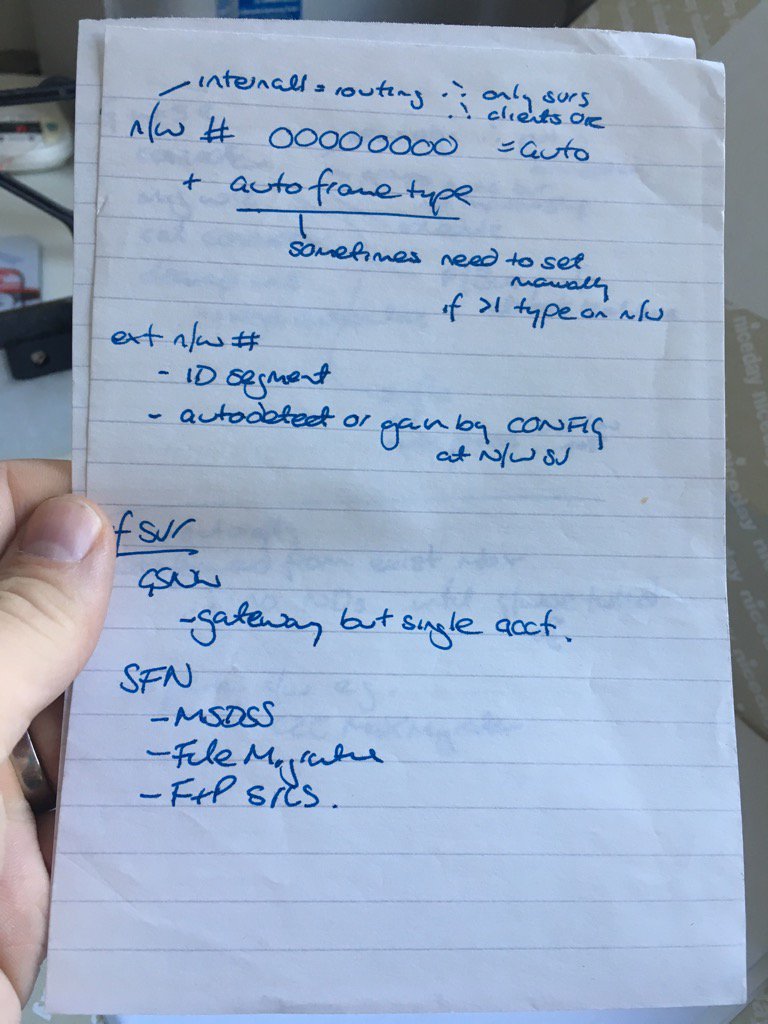 internall = routing ∴ only svrs
∴ clients OK
n/w # 00000000 = auto
+ auto frame type
sometimes need to set
manually
if >1 type on n/w
ext n/w #
- ID segment
- autodetect or gain by CONFIG
at N/W sv
f svr
GSNW
- gateway but single acct.
SFN
- MSDSS
- File Migration
- F+P srcs.
niceday niceday